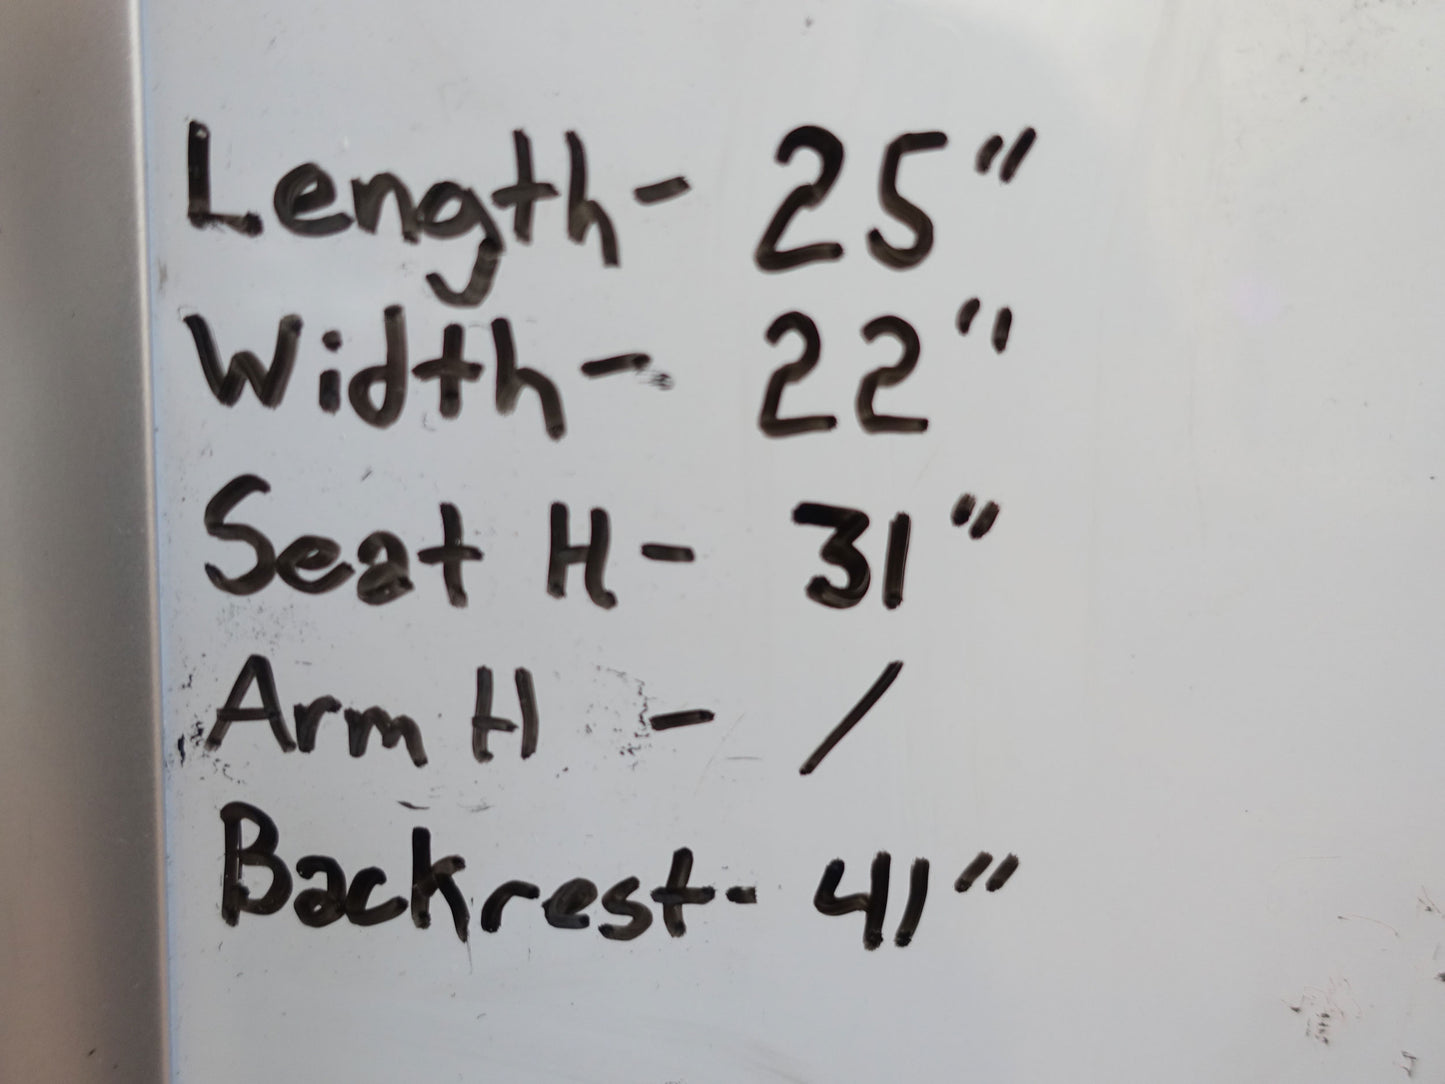 Length- 25"
Width- 22"
Seat H- 31"
Arm H - /
Backrest- 41"